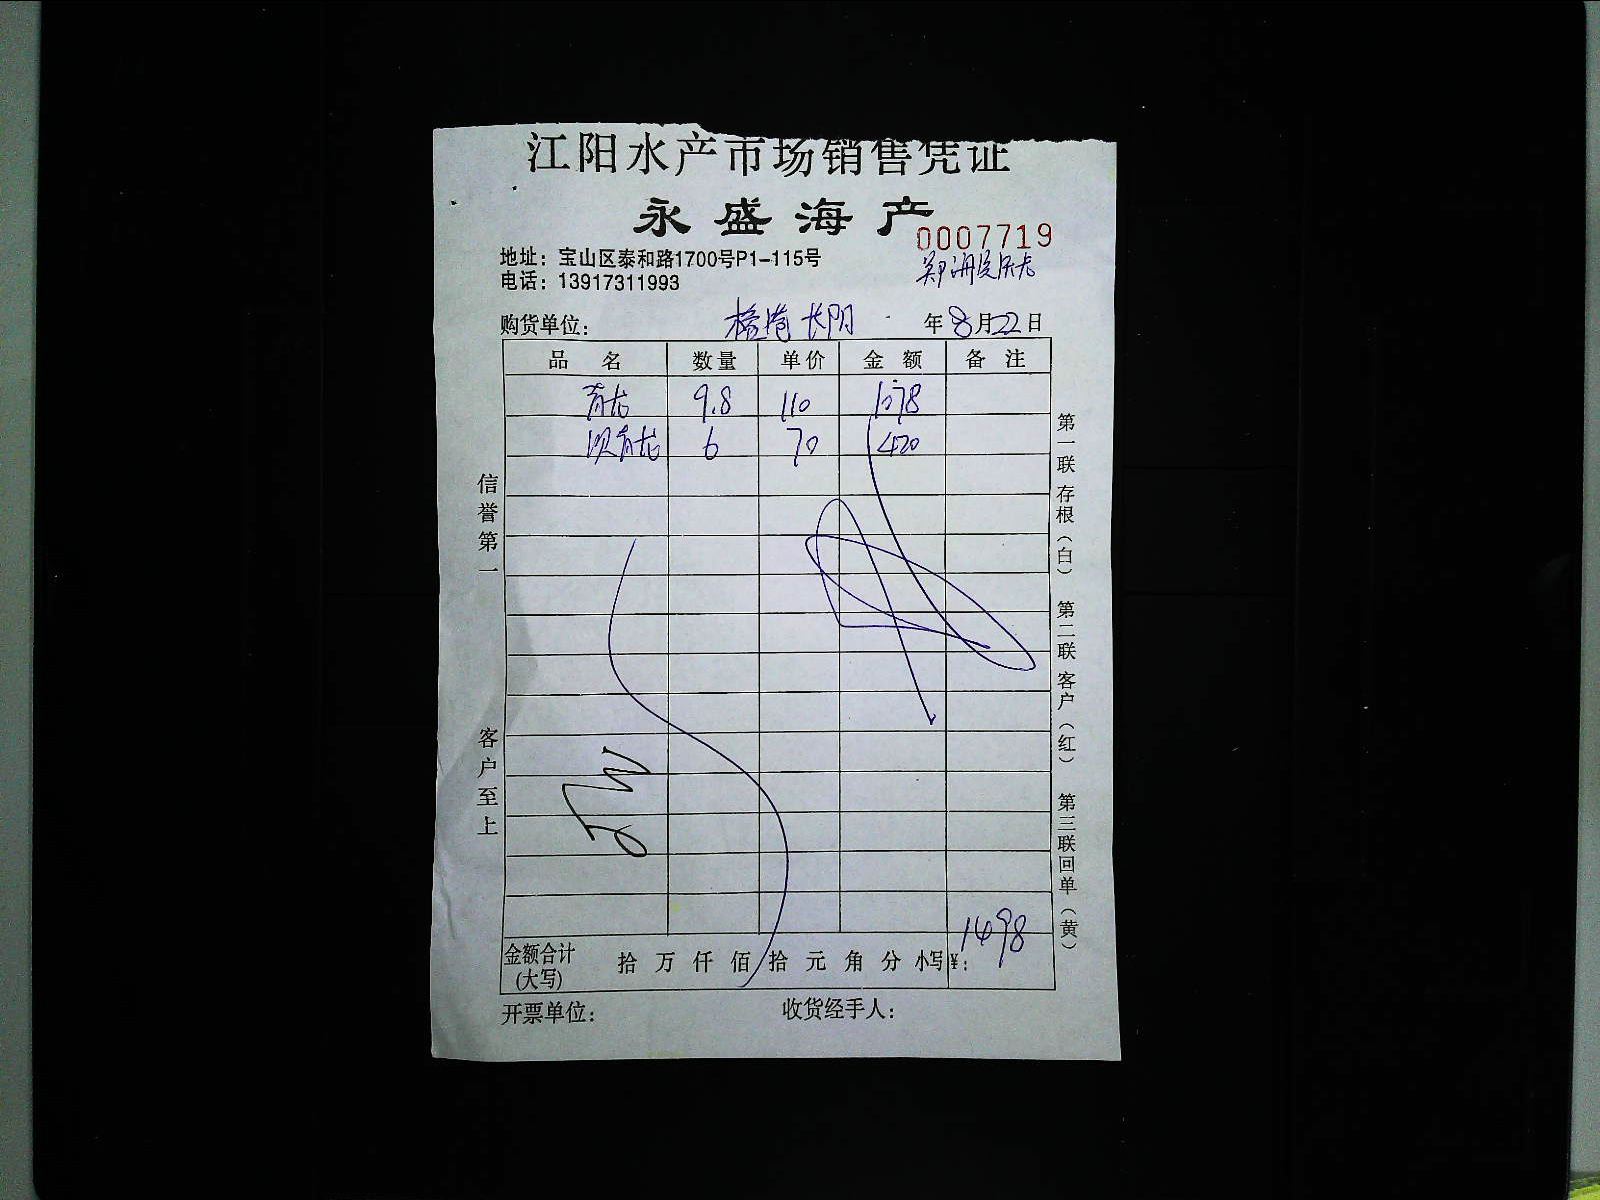 江阳水产市场销售凭证
永盛海产
0007719
地址：宝山区泰和路1700号P1-115号
电话：13917311993
购货单位： 年8月22日
品名 数量 单价 金额 备注
青龙 9.8 110 1078
青龙 6 70 420
信誉第一 客户至上
第一联存根（白） 第二联客户（红） 第三联回单（黄）
金额合计(大写) 拾 万 仟 佰 拾 元 角 分 小写¥：1498
开票单位： 收货经手人：